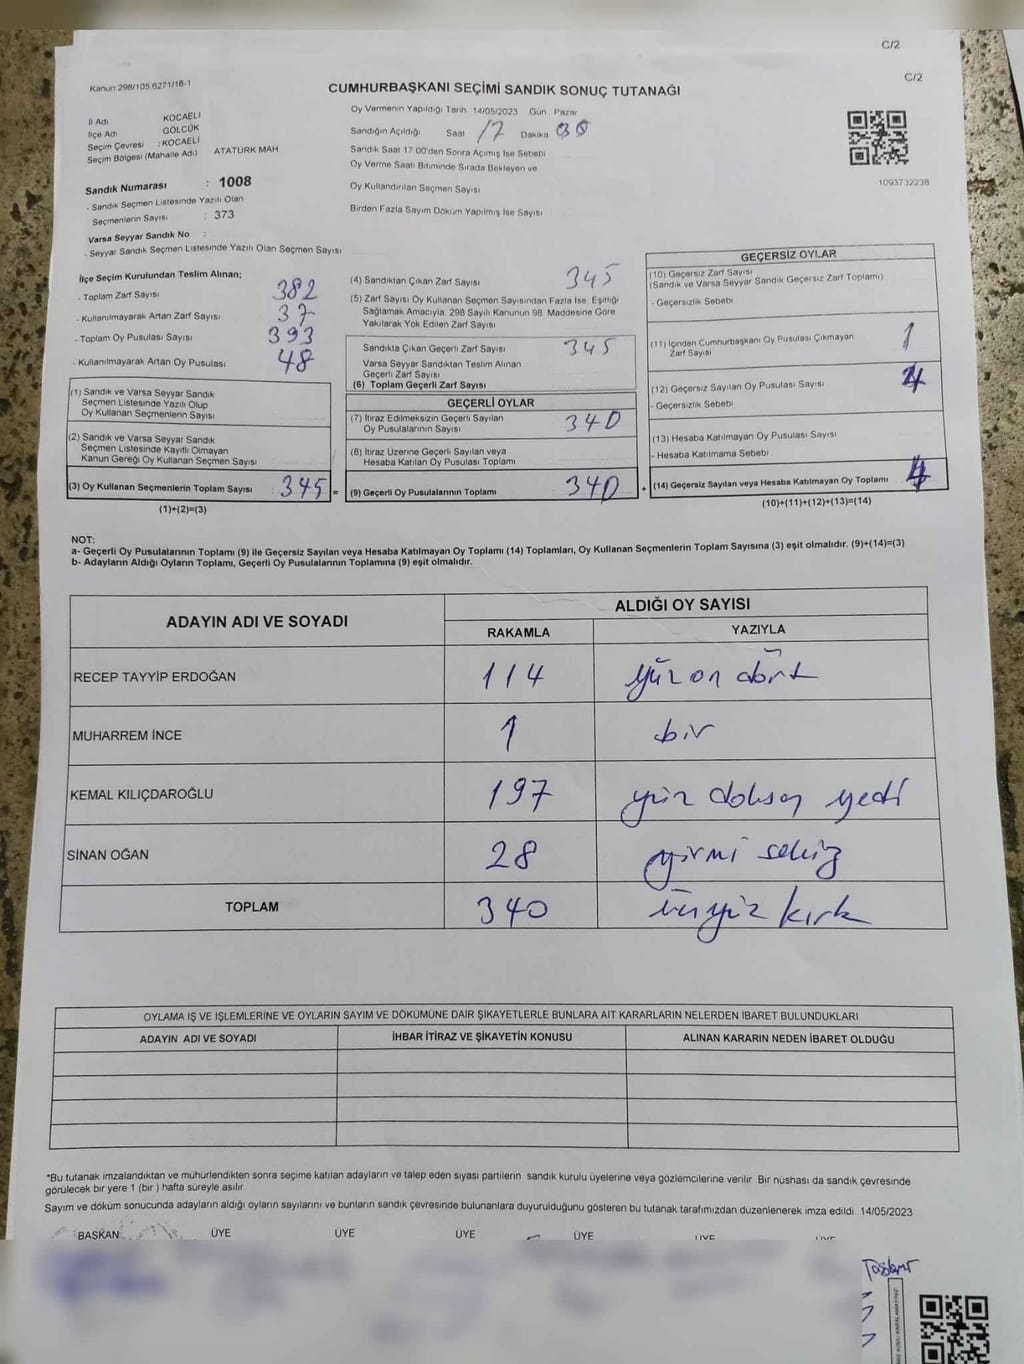 C/2
C/2
Kanun 298/105,6271/18-1
CUMHURBAŞKANI SEÇİMİ SANDIK SONUÇ TUTANAĞI
İl Adı KOCAELİ
İlçe Adı GÖLCÜK
Seçim Çevresi : KOCAELİ
Seçim Bölgesi (Mahalle Adı) ATATÜRK MAH
Sandık Numarası : 1008
- Sandık Seçmen Listesinde Yazılı Olan
Seçmenlerin Sayısı : 373
Varsa Seyyar Sandık No :
- Seyyar Sandık Seçmen Listesinde Yazılı Olan Seçmen Sayısı
Oy Vermenin Yapıldığı Tarih 14/05/2023 Gün Pazar
Sandığın Açıldığı Saat 17 Dakika 00
Sandık Saat 17:00'den Sonra Açılmış İse Sebebi
Oy Verme Saati Bitiminde Sırada Bekleyen ve
Oy Kullandırılan Seçmen Sayısı
Birden Fazla Sayım Döküm Yapılmış İse Sayısı
1093732238
İlçe Seçim Kurulundan Teslim Alınan;
- Toplam Zarf Sayısı 382
- Kullanılmayarak Artan Zarf Sayısı 37
- Toplam Oy Pusulası Sayısı 393
- Kullanılmayarak Artan Oy Pusulası 48
(1) Sandık ve Varsa Seyyar Sandık
Seçmen Listesinde Yazılı Olup
Oy Kullanan Seçmenlerin Sayısı
(2) Sandık ve Varsa Seyyar Sandık
Seçmen Listesinde Kayıtlı Olmayan
Kanun Gereği Oy Kullanan Seçmen Sayısı
(3) Oy Kullanan Seçmenlerin Toplam Sayısı 345 =
(1)+(2)=(3)
(4) Sandıktan Çıkan Zarf Sayısı 345
(5) Zarf Sayısı Oy Kullanan Seçmen Sayısından Fazla İse, Eşitliği
Sağlamak Amacıyla, 298 Sayılı Kanunun 98. Maddesine Göre
Yakılarak Yok Edilen Zarf Sayısı
Sandıkta Çıkan Geçerli Zarf Sayısı 345
Varsa Seyyar Sandıktan Teslim Alınan
Geçerli Zarf Sayısı
(6) Toplam Geçerli Zarf Sayısı
GEÇERLİ OYLAR
(7) İtiraz Edilmeksizin Geçerli Sayılan
Oy Pusulalarının Sayısı 340
(8) İtiraz Üzerine Geçerli Sayılan veya
Hesaba Katılan Oy Pusulası Toplamı
(9) Geçerli Oy Pusulalarının Toplamı 340 +
GEÇERSİZ OYLAR
(10) Geçersiz Zarf Sayısı
(Sandık ve Varsa Seyyar Sandık Geçersiz Zarf Toplamı)
- Geçersizlik Sebebi
(11) İçinden Cumhurbaşkanı Oy Pusulası Çıkmayan
Zarf Sayısı 1
(12) Geçersiz Sayılan Oy Pusulası Sayısı 4
- Geçersizlik Sebebi
(13) Hesaba Katılmayan Oy Pusulası Sayısı
- Hesaba Katılmama Sebebi
(14) Geçersiz Sayılan veya Hesaba Katılmayan Oy Toplamı
(10)+(11)+(12)+(13)=(14)
NOT:
a- Geçerli Oy Pusulalarının Toplamı (9) ile Geçersiz Sayılan veya Hesaba Katılmayan Oy Toplamı (14) Toplamları, Oy Kullanan Seçmenlerin Toplam Sayısına (3) eşit olmalıdır. (9)+(14)=(3)
b- Adayların Aldığı Oyların Toplamı, Geçerli Oy Pusulalarının Toplamına (9) eşit olmalıdır.
ADAYIN ADI VE SOYADI ALDIĞI OY SAYISI
RAKAMLA YAZIYLA
RECEP TAYYİP ERDOĞAN 114 yüz on dört
MUHARREM İNCE 1 bir
KEMAL KILIÇDAROĞLU 197 yüz doksan yedi
SİNAN OĞAN 28 yirmi sekiz
TOPLAM 340 üçyüz kırk
OYLAMA İŞ VE İŞLEMLERİNE VE OYLARIN SAYIM VE DÖKÜMÜNE DAİR ŞİKAYETLERLE BUNLARA AİT KARARLARIN NELERDEN İBARET BULUNDUKLARI
ADAYIN ADI VE SOYADI İHBAR İTİRAZ VE ŞİKAYETİN KONUSU ALINAN KARARIN NEDEN İBARET OLDUĞU
*Bu tutanak imzalandıktan ve mühürlendikten sonra seçime katılan adayların ve talep eden siyasi partilerin sandık kurulu üyelerine veya gözlemcilerine verilir. Bir nüshası da sandık çevresinde
görülecek bir yere 1 (bir ) hafta süreyle asılır.
Sayım ve döküm sonucunda adayların aldığı oyların sayılarını ve bunların sandık çevresinde bulunanlara duyurulduğunu gösteren bu tutanak tarafımızdan düzenlenerek imza edildi. 14/05/2023
BAŞKAN ÜYE ÜYE ÜYE ÜYE ÜYE ÜYE